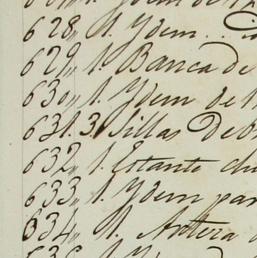 628,, 1. Ydem..
629,, 1. Banca de
630,, 1. Ydem de
631. 3. Sillas de
632,, 1. Estante
633,, 1. Ydem par
634,, 1.